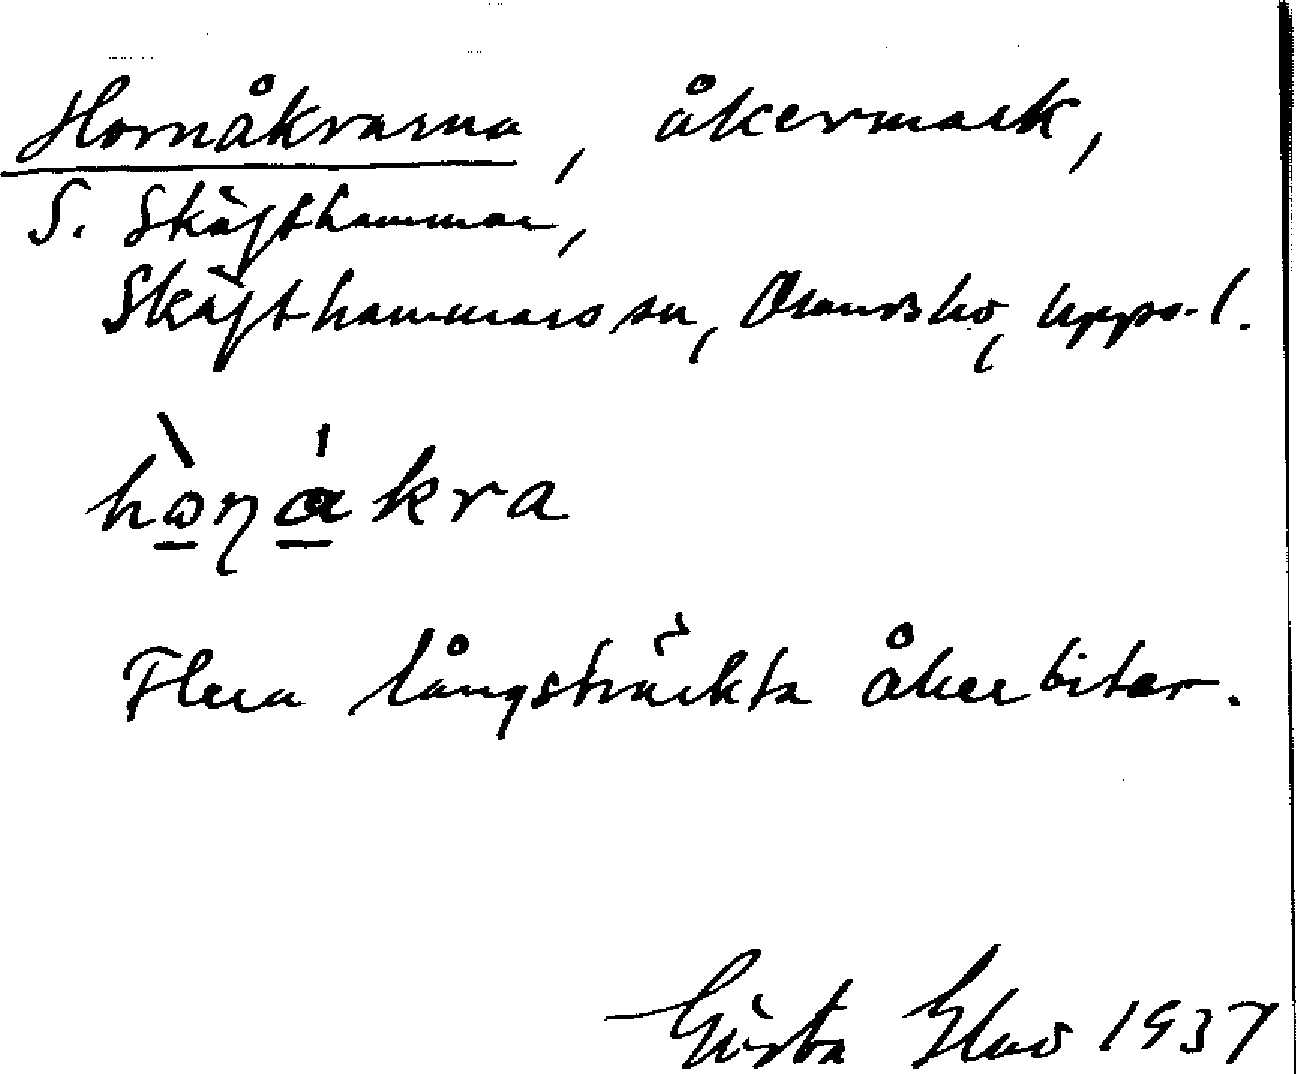 Hornåkrarna, åkermark,
S. Skäfthammar,
Skäfthammars sn, Olands hd, Upps. l.
hɷ̀ηákra
Flera långsträckta åkerbitar.
Gösta 1937